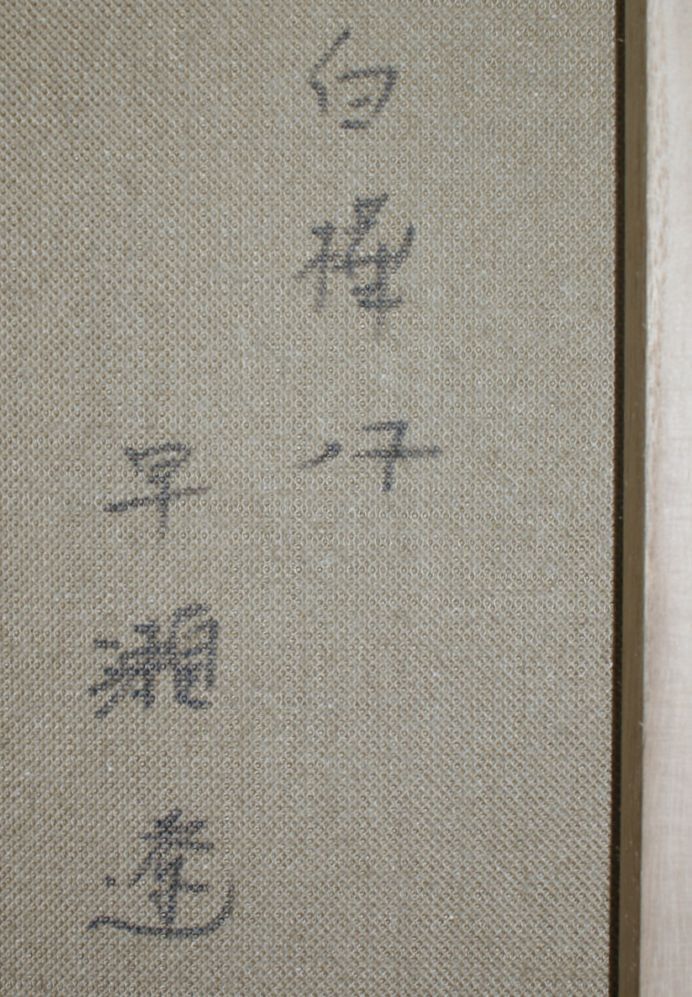 白樺
早瀬 達